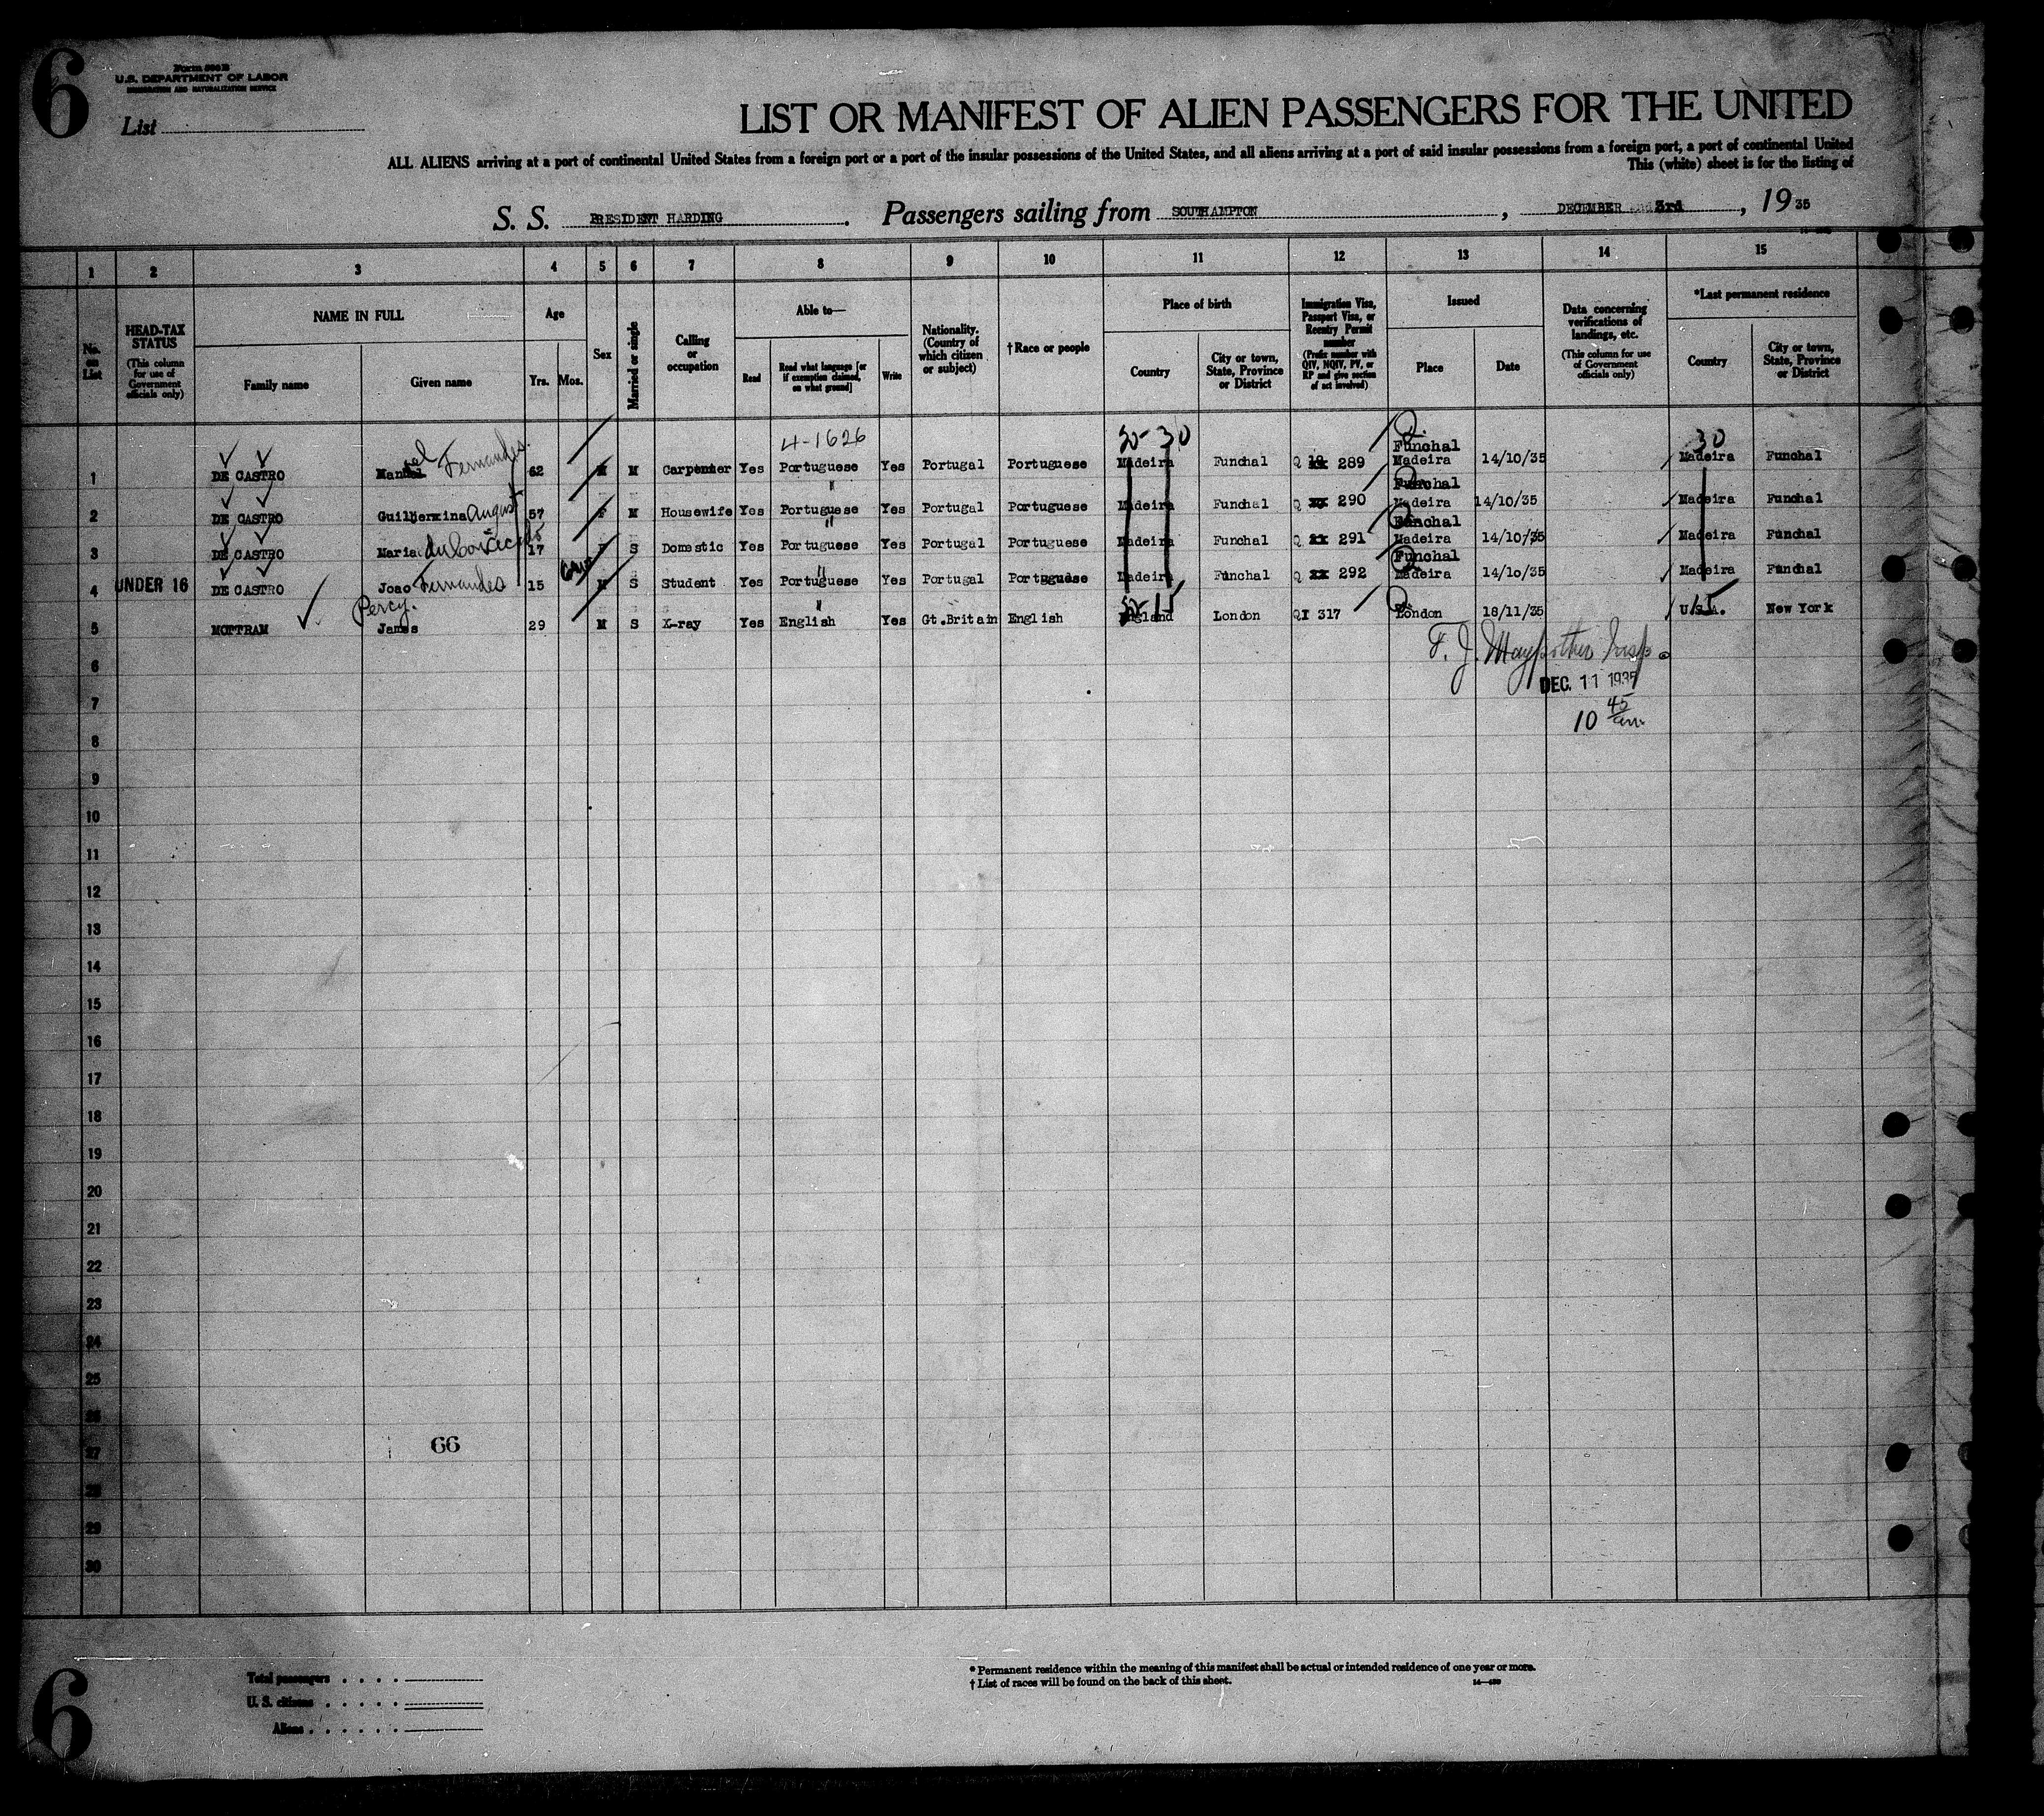 6
Form 500 B
U.S. DEPARTMENT OF LABOR
IMMIGRATION AND NATURALIZATION SERVICE
List
LIST OR MANIFEST OF ALIEN PASSENGERS FOR THE UNITED
ALL ALIENS arriving at a port of continental United States from a foreign port or a port of the insular possessions of the United States, and all aliens arriving at a port of said insular possessions from a foreign port, a port of continental United
This (white) sheet is for the listing of
S. S. PRESIDENT HARDING . Passengers sailing from SOUTHAMPTON , DECEMBER 3rd , 19 35
1 2 3 4 5 6 7 8 9 10 11 12 13 14 15
No. on List
HEAD-TAX STATUS (This column for use of Government officials only)
NAME IN FULL
Family name
Given name
Age
Yrs. Mos.
Sex
Married or single
Calling or occupation
Able to—
Read
Read what language [or if exemption claimed, on what ground]
Write
Nationality. (Country of which citizen or subject)
†Race or people
Place of birth
Country
City or town, State, Province or District
Immigration Visa, Passport Visa, or Reentry Permit number (Prefix number with QIV, NQIV, PV, or RP and give section of act involved)
Issued
Place
Date
Data concerning verifications of landings, etc. (This column for use of Government officials only)
*Last permanent residence
Country
City or town, State, Province or District
4-1626 30 30
1 DE CASTRO Manuel Fernandes 62 M M Carpenter Yes Portuguese Yes Portugal Portuguese Madeira Funchal Q 289 Funchal Madeira 14/10/35 Madeira Funchal
2 DE CASTRO Guilhermina August 57 F M Housewife Yes Portuguese " Yes Portugal Portuguese Madeira Funchal Q 290 Funchal Madeira 14/10/35 Madeira Funchal
3 DE CASTRO Maria 17 F S Domestic Yes Portuguese " Yes Portugal Portuguese Madeira Funchal Q 291 Funchal Madeira 14/10/35 Madeira Funchal
4 UNDER 16 DE CASTRO Joao Fernandes 15 M S Student Yes Portuguese " Yes Portugal Portuguese Madeira Funchal Q 292 Funchal Madeira 14/10/35 Madeira Funchal
5 MOTTRAM Percy. James 29 M S X-ray Yes English " Yes Gt.Britain English England London QI 317 London 18/11/35 U.S.A. New York
6
7
8
9
10
11
12
13
14
15
16
17
18
19
20
21
22
23
24
25
26
27
28
29
30
F. J. Maypother Insp.
DEC. 11 1935
10 45 am
66
6
Total passengers
U. S. citizens
Aliens
* Permanent residence within the meaning of this manifest shall be actual or intended residence of one year or more.
† List of races will be found on the back of this sheet.